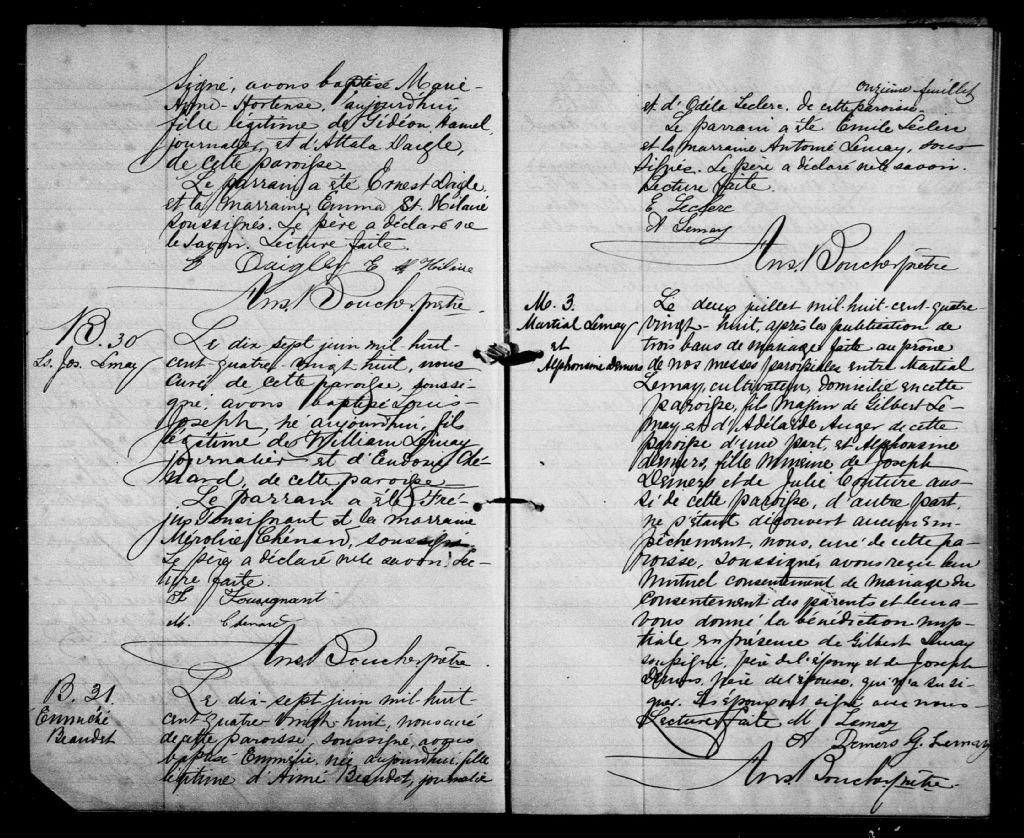 signé, avons baptisé Marie-
Anne-Hortense, aujourd'hui,
fille légitime de Gédéon Hamel,
journalier, et d'Attala Daigle,
de cette paroisse
Le parrain a été Ernest Daigle
et la marraine Emma St. Hilaire
soussignés. Le père a déclaré ne
le savoir. Lecture faite.
E Daigle E St Hilaire
Ans. Boucher ptre.
B. 30
Ls. Jos. Lemay
Le dix sept juin mil-huit
cent-quatre-vingt huit, nous
curé de cette paroisse, soussi-
gné, avons baptisé Louis-
Joseph, né aujourd'hui, fils
légitime de William Lemay
journalier et d'Eudoxie Ché-
nard, de cette paroisse
Le parrain a été
Tousignant et la marraine
Chénard, soussignés
Le père a déclaré ne le savoir. Lec-
ture faite.
F Tousignant
M. Chenard
Ans. Boucher ptre.
B. 31.
Beaudet
Le dix-sept juin mil-huit
cent quatre vingt huit, nous curé
de cette paroisse, soussigné, avons
baptisé née aujourd'hui, fille
légitime d'Aimé Beaudet, journalier
Onzième feuillet
et d'Odéla Leclerc, de cette paroisse.
Le parrain a été Émile Leclerc
et la marraine Lemay, sous-
signés. Le père a déclaré ne le savoir.
Lecture faite.
E Leclerc
A Lemay
Ans. Boucher ptre
M. 3.
Martial Lemay
et
Alphonsine Demers
Le deux juillet mil-huit-cent-quatre
vingt-huit, après la publication de
trois bans de mariage faite au prône
de nos messes paroissiales entre Martial
Lemay, cultivateur, domicilié en cette
paroisse, fils majeur de Gilbert Le-
may et d'Adélaïde Auger de cette
paroisse d'une part, et Alphonsine
Demers, fille mineure de Joseph
Demers et de Julie Couture aus-
si de cette paroisse, d'autre part,
ne s'étant découvert aucun em-
pêchement, nous, curé de cette pa-
roisse, soussigné avons reçu leur
mutuel consentement de mariage du
consentement des parents et leur a-
vons donné la bénédiction nup-
tiale en présence de Gilbert Lemay
soussigné, père de l'époux et de Joseph
Demers, père de l'épouse, qui n'a su si-
gner. Les époux ont signé avec nous.
Lecture faite M Lemay
A Demers G. Lemay
Ans. Boucher ptre.